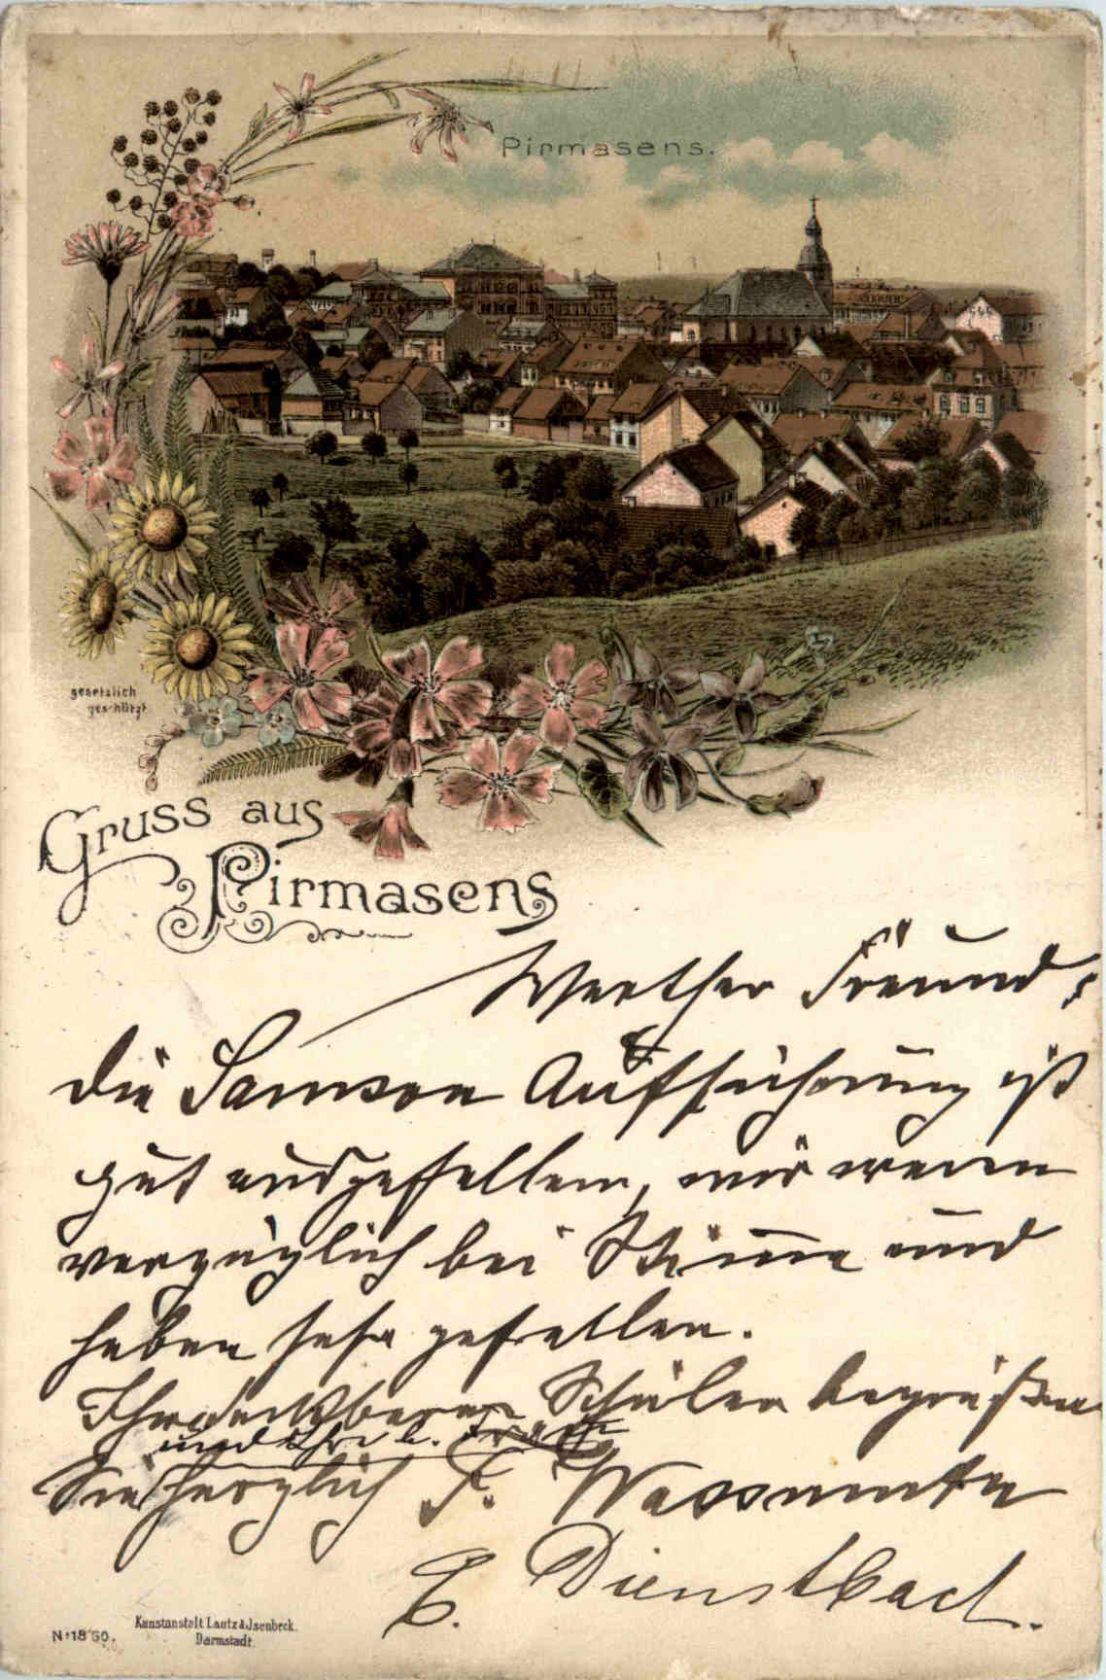 Pirmasens.
gesetzlich
geschützt
Gruss aus
Pirmasens
Werther Freund,
die Samson Aufführung ist
gut ausgefallen, wir waren
vorzüglich bei Stimme und
haben sehr gefallen.
Ihre dankbaren Schüler begrüßen
und Ihre l. Frau
Sie herzlich F.
E. Dienstbach.
No 1850.
Kunstanstalt Lautz & Jsenbeck.
Darmstadt.